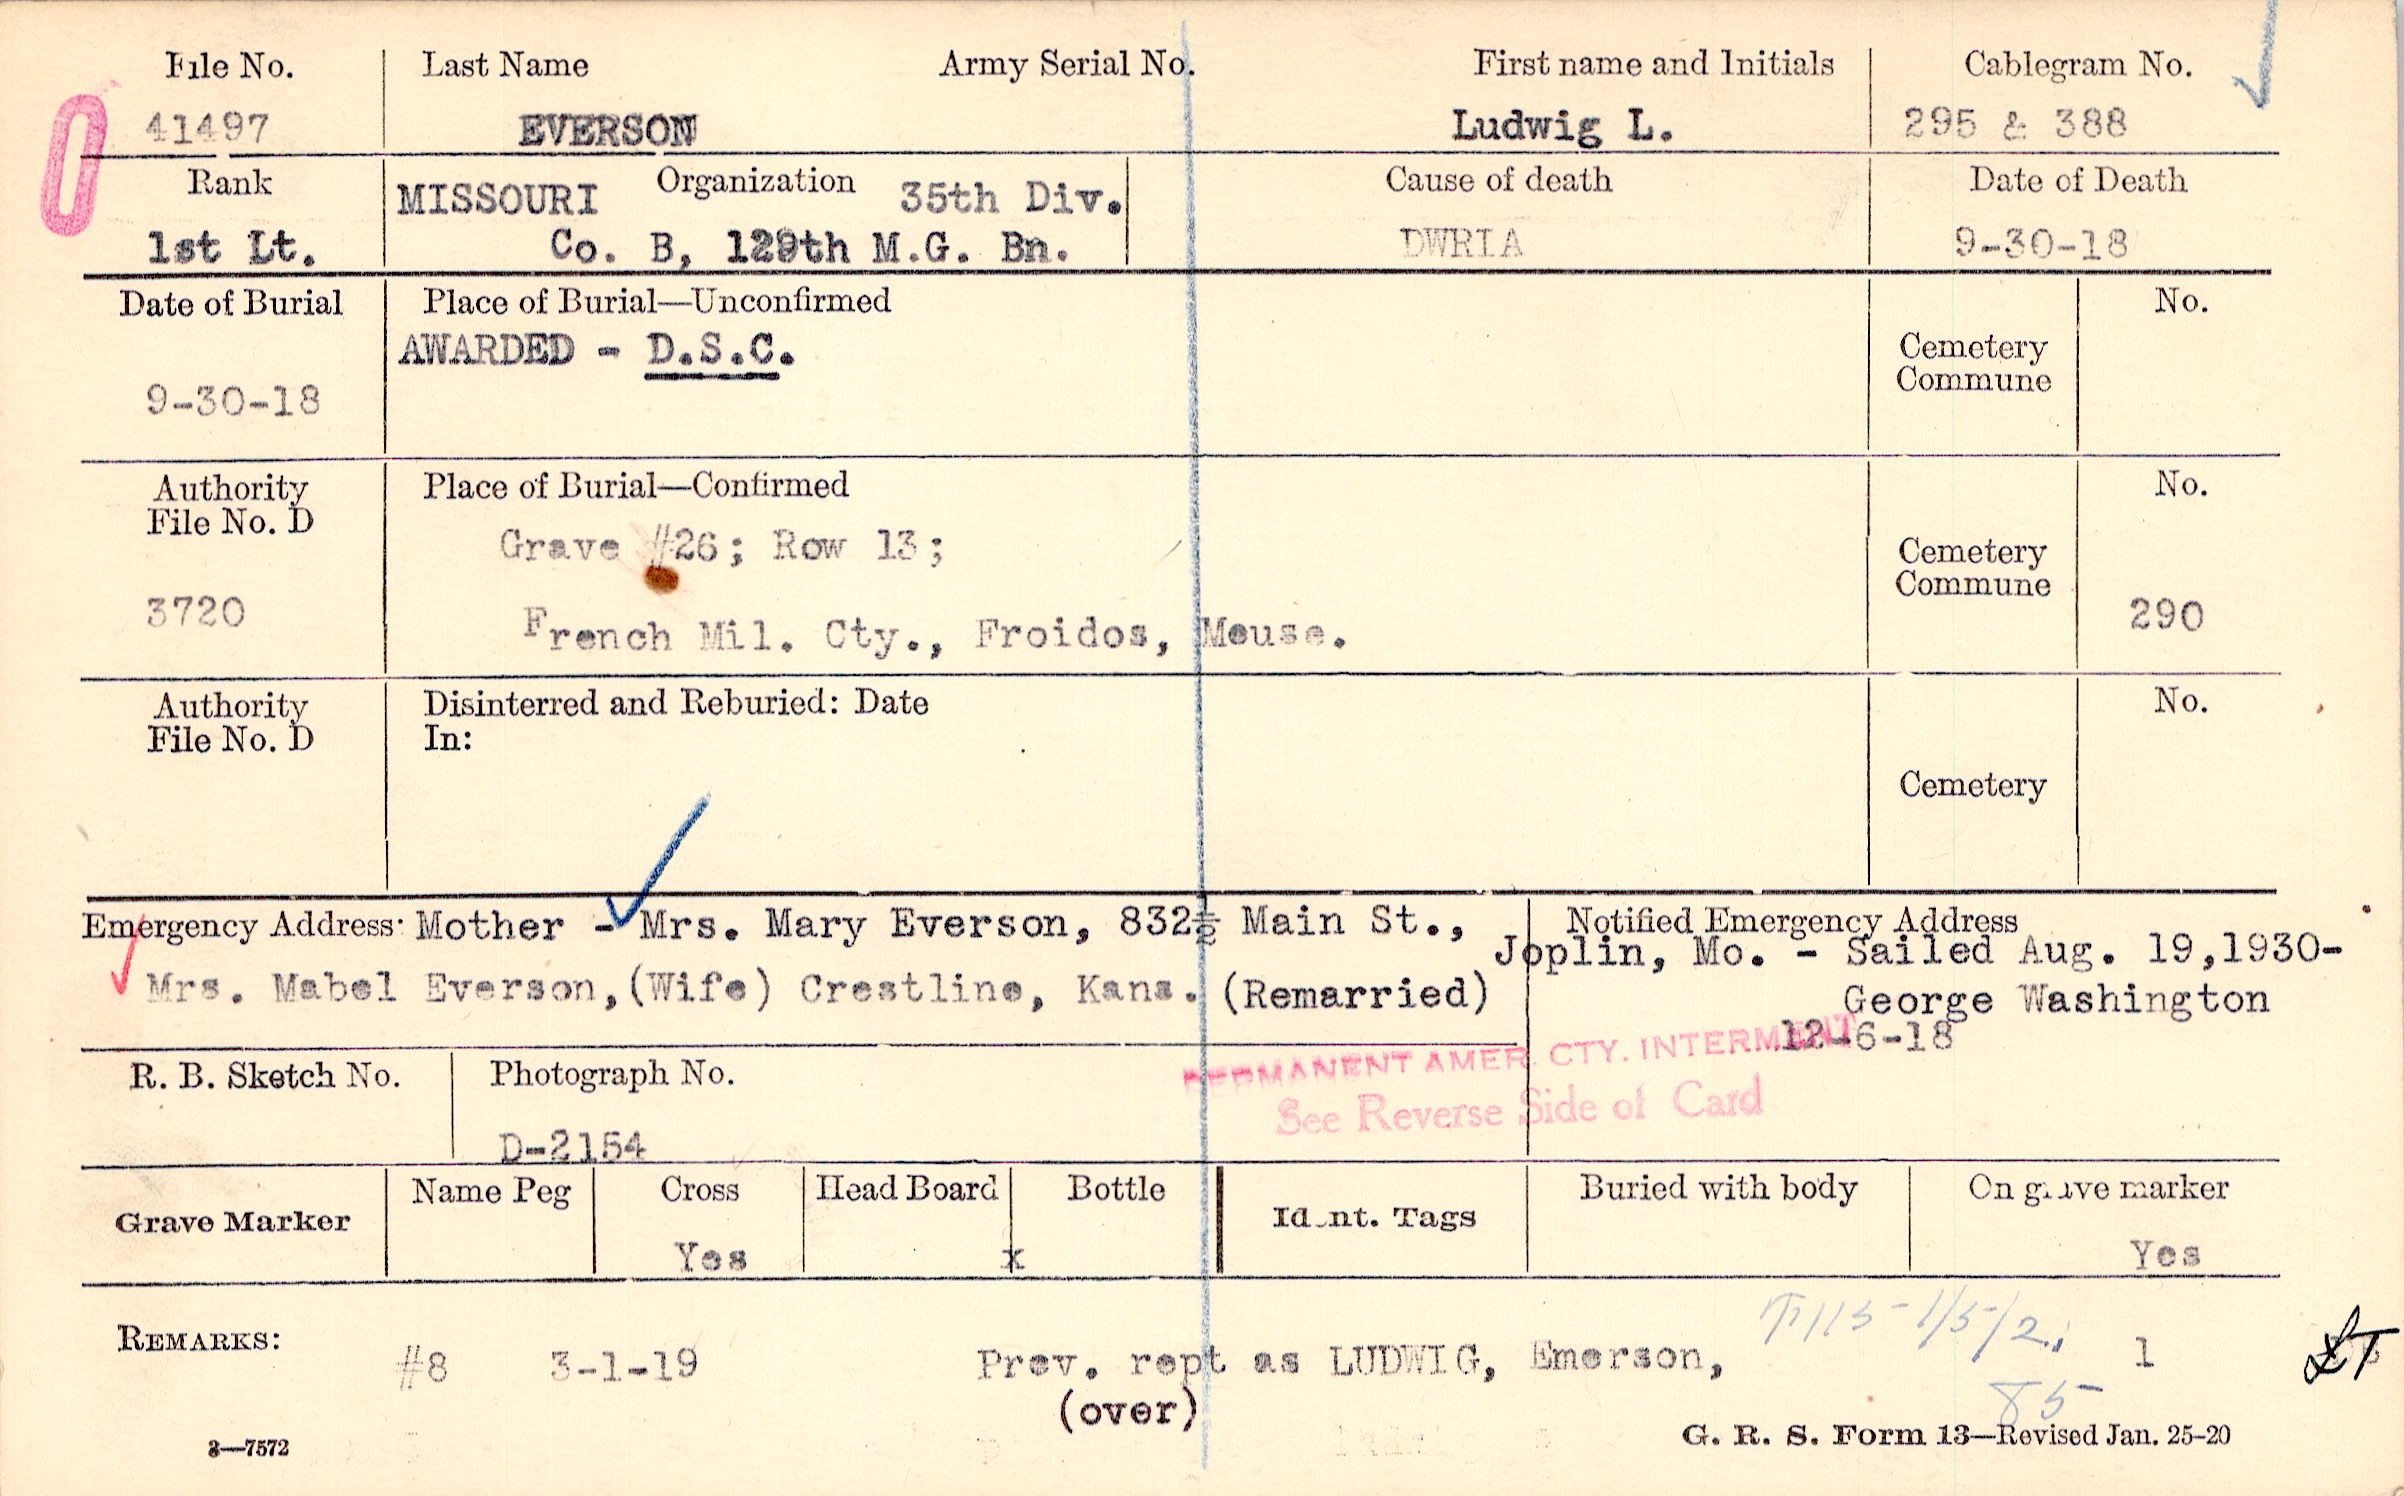 File No. Last Name Army Serial No. First name and Initials Cablegram No.
41497 EVERSON Ludwig L. 295 & 388
Rank MISSOURI Organization 35th Div. Cause of death Date of Death
1st Lt. Co. B, 129th M.G. Bn. DWRIA 9-30-18
Date of Burial Place of Burial—Unconfirmed No.
AWARDED - D.S.C. Cemetery
Commune
9-30-18
Authority Place of Burial—Confirmed No.
File No. D
Grave #26; Row 13; Cemetery
Commune
3720 French Mil. Cty., Froidos, Meuse. 290
Authority Disinterred and Reburied: Date No.
File No. D In:
Cemetery
Emergency Address: Mother - Mrs. Mary Everson, 832½ Main St., Notified Emergency Address
Joplin, Mo. - Sailed Aug. 19,1930-
Mrs. Mabel Everson,(Wife) Crestline, Kans. (Remarried) George Washington
12-6-18
PERMANENT AMER. CTY. INTERMENT
R. B. Sketch No. Photograph No.
See Reverse Side of Card
D-2154
Grave Marker Name Peg Cross Head Board Bottle Ident. Tags Buried with body On grave marker
Yes x Yes
REMARKS:
#8 3-1-19 Prev. rept as LUDWIG, Emerson, 1
(over) 85
3—7572 G. R. S. Form 13—Revised Jan. 25-20